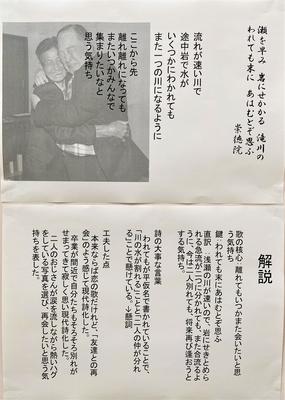 瀬を早み 岩にせかるる 滝川の
われても末に あはむとぞ思ふ
崇徳院
流れが速い川で
途中岩で水が
いくつかにわかれても
また一つの川になるように
ここから先
離れ離れになっても
またいつかみんなで
集まりたいなと
思う気持ち
解説
歌の核心:離れてもいつかまた会いたいと思
う気持ち
鍵:われても末にあはむとぞ思ふ
直訳:浅瀬の川が速いので、岩にせきとめら
れる急流が二つに分かれても、また合流するよ
うに、今は二人別れても、将来再び逢おうと
する気持ち。
詩の大事な言葉
われてもが平仮名で書かれていることで、
「川の水が割れることと二人の仲が分れ
る」ことで懸けている。→懸詞
工夫した点
本来ならば恋の歌だけれど、「友達との再
会」のよう感じて現代詩化した。
卒業が間近で自分たちもそろそろ別れが
せまってきて寂しく思い現代詩化した。
二人のおじさんが涙を流しながら熱いハグ
をしている写真を選び、再会したいと思う気
持ちを表した。